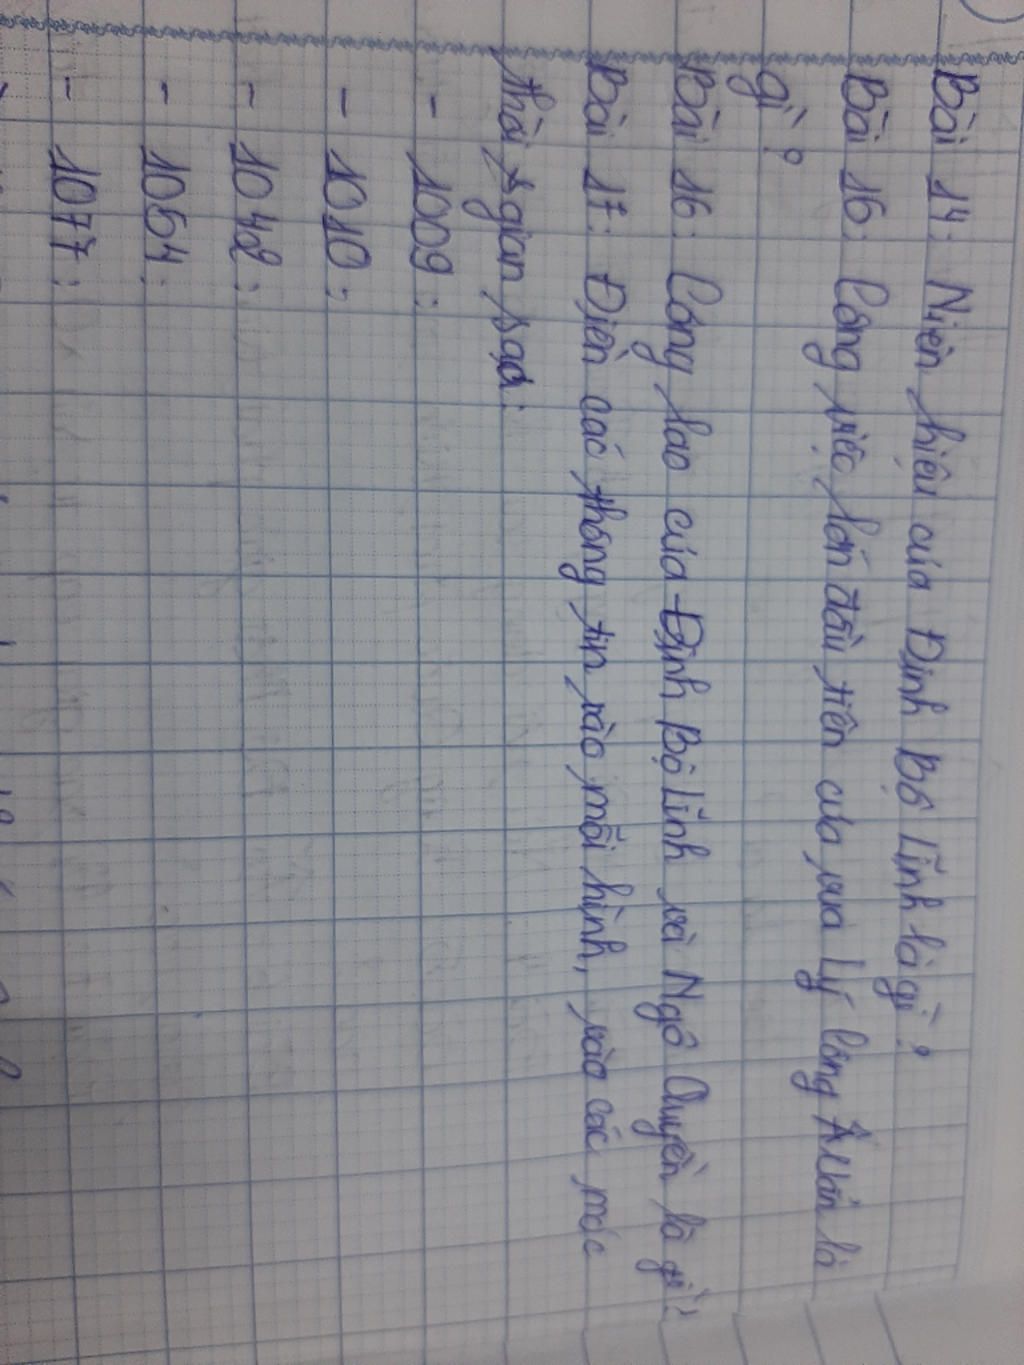 Bài 14: Niên hiệu của Đinh Bộ Lĩnh là gì?
Bài 16: Công việc lớn đầu tiên của vua Lý Công Uẩn là
gì?
Bài 16: Công lao của Định Bộ Lĩnh và Ngô Quyền là gì?
Bài 17: Điền các thông tin vào mỗi hình, vào các mốc
thời gian sau:
- 1009:
- 1010:
- 1042:
- 1054:
- 1077: